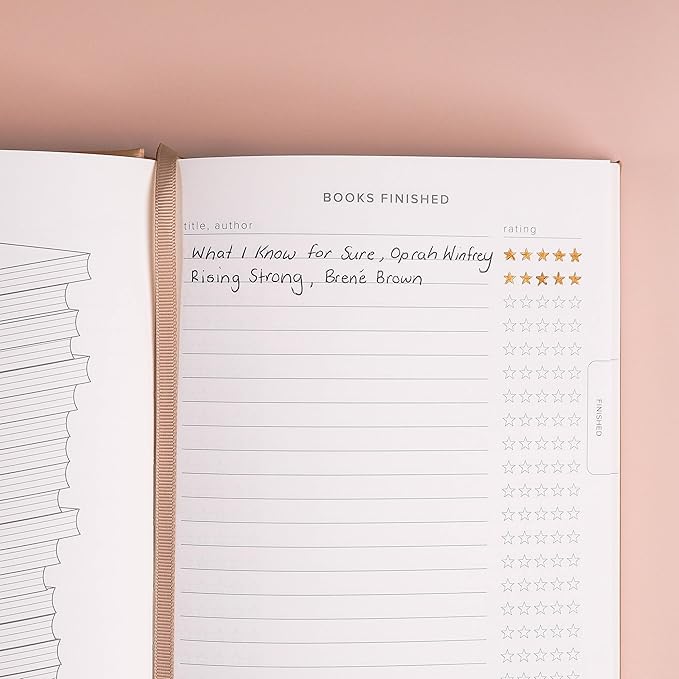 BOOKS FINISHED
title, author rating
What I Know for Sure, Oprah Winfrey
Rising Strong, Brené Brown
FINISHED